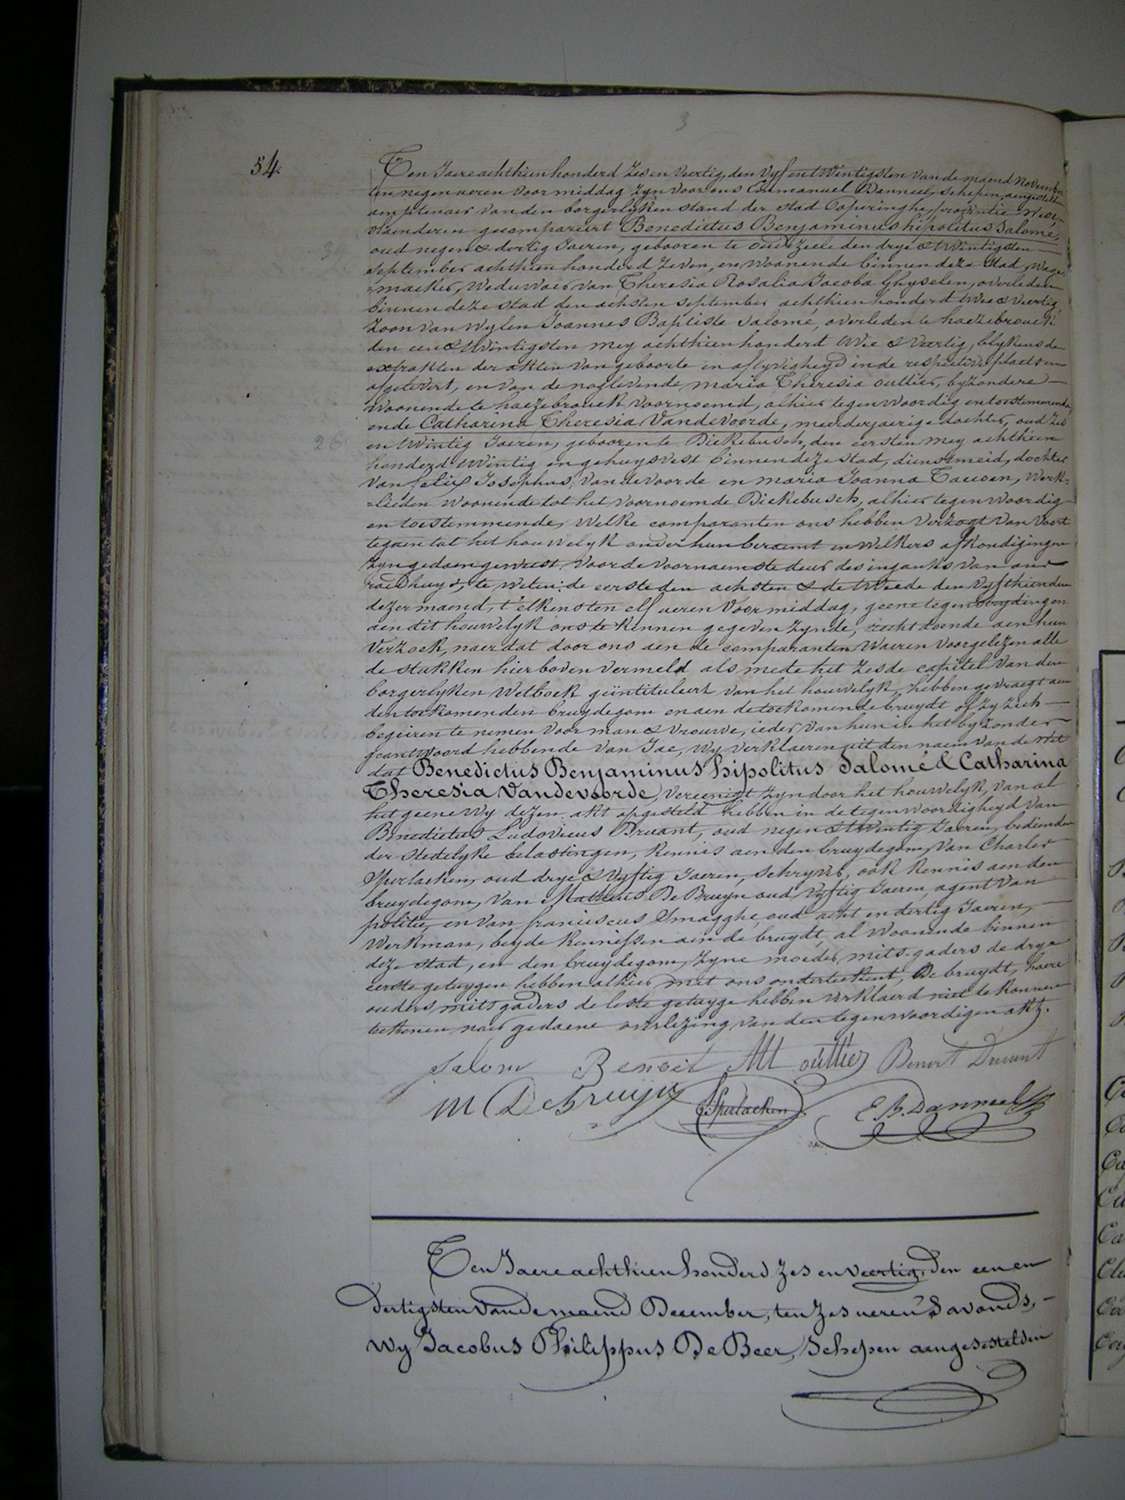 3
54.
Ten Jaere achthien honderd Zes en veertig, den vyf en twintigsten van de maend November
ten negen ueren voormiddag zyn voor ons Emmanuel Benneel, schepen, aengestelden
amptenaer van den borgerlyken stand der stad Poperinghe, provintie West-
vlaenderen gecompareert Benedictus Benjaminus hipolitus Salomé,
oud negen & dertig Jaeren, gebooren te oud Zeele den drye & twintigsten
september achthien honderd zeven, en woonende binnen deze stad, wage-
maeker, weduwaer van Theresia Rosalia Jacoba Ghyselen, overleden
binnen deze stad den achsten september achthien honderd twee & veertig
zoon van wylen Joannes Baptiste Salomé, overleden te haezebrouck
den een & twintigsten mey achthien honderd drie & veertig, blykens de
extrakten der akten van geboorte en aflyvigheyd in de respective plaetsen
afgelevert, en van de noglevende maria Theresia oultier, byzondere
woonende te haezebrouck voornoemd, alhier tegenwoordig en toestemmende,
ende Catharina Theresia Vandevoorde, meerderjaerige dochter, oud Zes
26
en twintig Jaeren, gebooren te Dickebusch, den eersten mey achthien
honderd twintig en gehuysvest binnen deze stad, dienstmeid, dochter
van felix Josephus Vandevoorde en maria Joanna Causen, werk-
lieden woonende tot het voornoemde Dickebusch, alhier tegenwoordig
en toestemmende, welke comparanten ons hebben verzogt van voort
te gaen tot het houwelyk onder hun beraemt en welkers afkondigingen
zyn gedaen geweest voor de voornaemste deur des ingangs van ons
raedhuys, te weten: de eerste den achsten & de tweede den vyfthienden
dezer maend, t'elkens ten elf ueren voormiddag, geene tegenstrydingen
aen dit houwelyk ons te kennen gegeven zynde, recht doende aen hun
verzoek, naer dat door ons aen de comparanten waeren voorgelezen alle
de stukken hier boven vermeld als mede het zesde capitel van den
borgerlyken wetboek geïntituleert van het houwelyk, hebben gevraegt aen
den toekomenden bruydegom en aen de toekomende bruydt of zy zich
begeiren te nemen voor man & vrouwe, ieder van hun in het byzonder
geantwoord hebbende van Jae, wy verklaeren uit den naem van de wet
dat Benedictus Benjaminus hipolitus Salomé & Catharina
Theresia Vandevoorde, vereenigt zyn door het houwelyk, van al
het geene wy dezen akt opgesteld hebben in de tegenwoordigheyd van
Benedictus Ludovicus Bruant, oud negen & twintig Jaeren, bedienden
der stedelyke belastingen, kennis aen den bruydegom, van Charles
Sperlacken, oud drye & vyftig Jaeren, schryver, ook kennis aen den
bruydegom, van Matheus De Bruyn oud vyftig Jaeren, agent van
politie, en van franciscus Smagghe, oud acht en dertig Jaeren,
werkman, beyde kennissen aen de bruydt, al woonende binnen
deze stad, en den bruydegom, zyne moeder, mits-gaders de drye
eerste getuygen hebben alhier met ons onderteekent, De bruydt, haere
ouders, mitsgaders de leste getuyge hebben verklaerd niet te konnen
teekenen, naer gedaene overlezing van den tegenwoordigen akt.
Salome Benoit Mt oultier Benoit Bruant
M DeBruijn C. Sperlacken E. B. Danneel
Ten Jaere achthien honderd zes en veertig, den een en
dertigsten van de maend December, ten zes ueren 's avonds,
wy Jacobus Philippus De Beer, schepen aengestelden